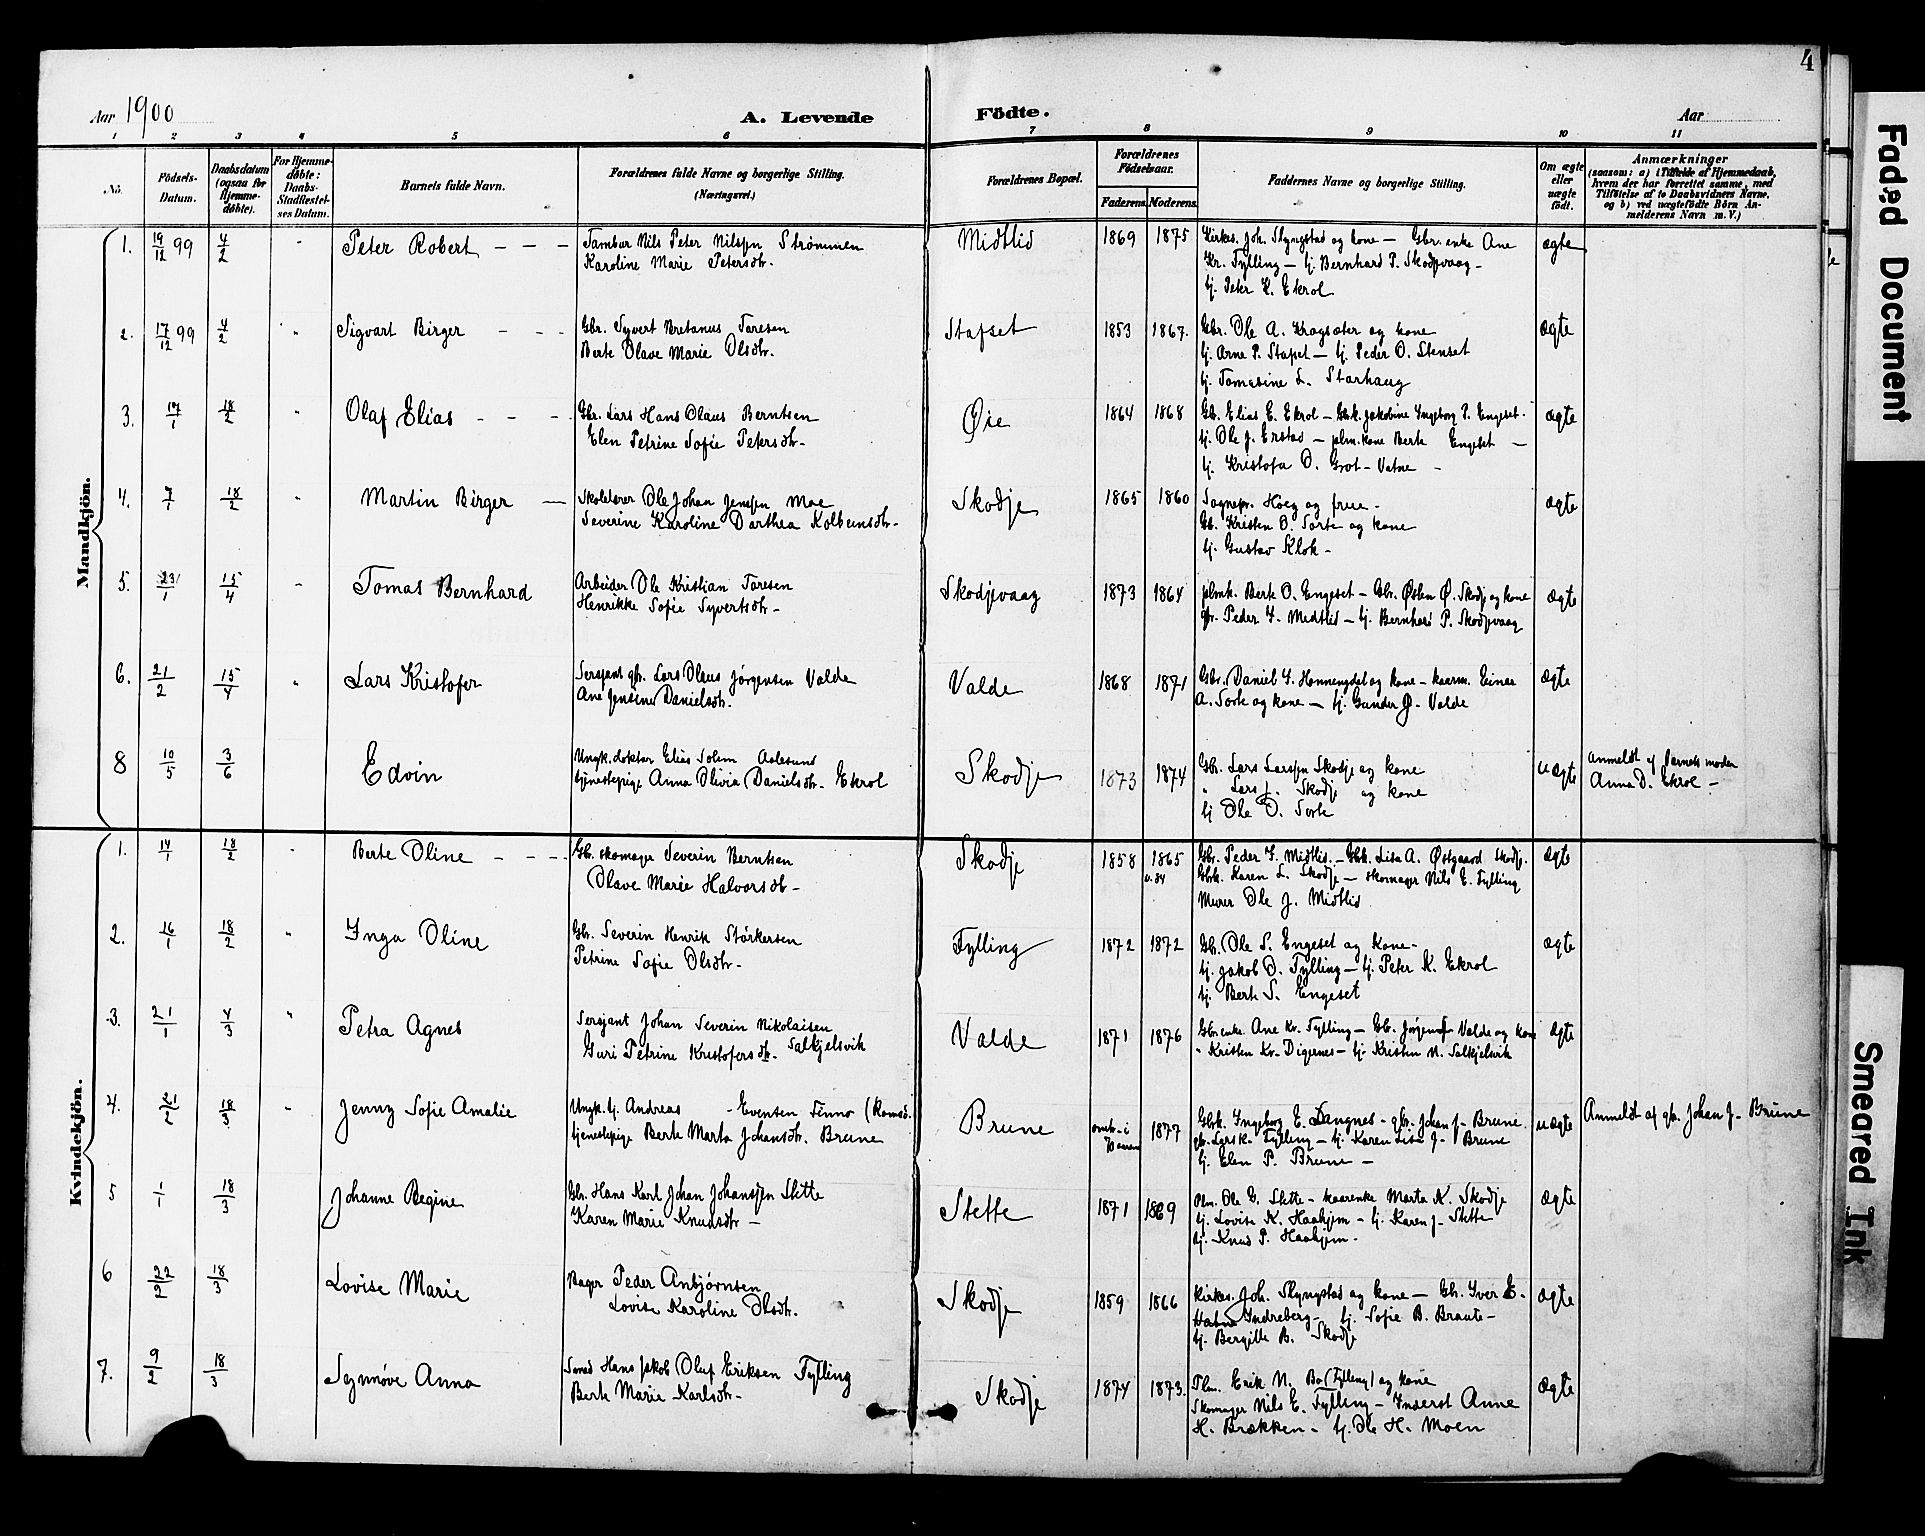 4
Aar 1900
A. Levende Födte.
Aar
1 2 3 4 5 6 7 8 9 10 11
No.
Födsels-Datum.
Daabsdatum (ogsaa for Hjemmedøbte).
For Hjemmedøbte: Daabs-Stadfestelses Datum.
Barnets fulde Navn.
Forældrenes fulde Navne og borgerlige Stilling. (Næringsvei.)
Forældrenes Bopæl.
Forældrenes Födselsaar.
Faderens. Moderens.
Faddernes Navne og borgerlige Stilling.
Om ægte eller uægte födt.
Anmærkninger
(saasom: a) i Tilfælde af Hjemmedaab, hvem der har forrettet samme, med Tilföielse af to Daabsvidners Navne, og b) ved uægtefödte Börn Anmelderens Navn m. V.)
Mandkjön.
1. 19/12 99 4/2 " Peter Robert - - - Tambur Nils Peter Nilsen Strömmen Midtlid 1869 1875 Kirkes. Joh. Slyngstad og kone - Gbr. enke Ane ægte
Karoline Marie Petersdtr. Kr. Fylling - tj. Bernhard P. Skodjevaag -
tj. Peter K. Ekrol
2. 17/12 99 4/2 " Sigvart Birger - - - Gbr. Syvert Bretanus Taresen Stafset 1853 1867. Gbr. Ole A. Kragsæter og kone ægte
Berte Olave Marie Olsdtr. tj. Arne P. Stafset - tj. Peder O. Stenset
tj. Tomasine L. Storhaug
3. 17/1 18/2 " Olaf Elias - - - Gbr. Lars Hans Olaus Berntsen Øie 1864 1868 Gbr. Elias E. Ekrol - Gbk. Jakobine Ingeborg P. Engeset. ægte
Elen Petrine Sofie Petersdtr. tj. Ole J. Erstad - plm. kone Berte Engeset -
tj. Kristofa O. Grot-Vatne -
4. 7/1 18/2 " Martin Birger - Skolelærer Ole Johan Jensen Moe Skodje 1865 1860 Sognepr. Hoeg og frue - ægte
Severine Karoline Dorthea Kolbeinsdtr. Gb. Kristen O. Sorte og kone
tj. Gustav Klok -
5. 23/1 15/4 " Tomas Bernhard Arbeider Ole Kristian Taresen Skodjevaag 1873 1864 plmk. Berte O. Engeset - Gbr. Østen Ø. Skodje og kone ægte
Henrikke Sofie Syvertsdtr. gbr. Peder I. Midtlid - tj. Bernhard P. Skodjevaag
6. 21/2 15/4 " Lars Kristofer Sersjant gbr. Lars Olaus Jørgensen Valde Valde 1868 1871 Gbr. Daniel I. Honnengdal og kone - kaarm. Einar ægte
Ane Jensine Danielsdtr. A. Sorte og kone - tj. Gunder J. Valde
8 10/5 3/6 Edvin Ungk. doktor Elias Solem Aalesund Skodje 1873 1874 Gbr. Lars Larsen Skodje og kone uægte Anmeldt af Barnets moder
tjenestepige Anna Olivia Danielsdtr. Ekrol " Lars J. Skodje og kone Anna D. Ekrol -
tj Ole O. Sorte
Kvindekjön.
1. 14/1 18/2 " Berte Oline - - - Gb. skomager Severin Berntsen Skodje 1858 1865 Gbr. Peder I. Midtlid - Gbk. Lisa A. Østgaard Skodje. ægte
Olave Marie Halvorsdtr. Gbk. Karen L. Skodje - skomager Nils E. Fylling
Murer Ole J. Midtlid
2. 16/1 18/2 " Inga Oline Gbr. Severin Henrik Störkersen Fylling 1872 1872 Gb. Ole S. Engeset og kone - ægte
Petrine Sofie Olsdtr. tj. Jakob O. Fylling - tj. Peter K. Ekrol
tj. Berte S. Engeset
3. 21/1 4/3 " Petra Agnes Sersjant Johan Severin Nikolaisen Valde 1871 1876 Gbr enke Ane Kr. Fylling - Gb. Jørgen J. Valde og kone ægte
Guri Petrine Kristofersdtr. Salkjelsvik " Kristen Kr. Digernes - tj. Kristen N. Salkjelsvik
4. 21/2 18/3 " Jenny Sofie Amalie Ungk. tj. Andreas - Evensen Finno (Romsd. Brune omtr. i 70 aarene 1877 Gbk. Ingeborg E. Langnes - gbr. Johan J. Brune uægte Anmeldt af gbr. Johan J. Brune
tjenestepige Berte Marta Johansdtr. Brune gb. Lars K. Fylling - tj. Karen Lisa J. Brune
tj. Elen P. Brune -
5 1/1 18/3 Johanne Regine Gbr. Hans Karl Johan Johansen Stette Stette 1871 1869 Plm. Ole G. Stette - kaarenke Marta K. Skodje ægte
Karen Marie Knudsdtr - tj. Lovise K. Haahjem - tj. Karen J. Stette
tj. Knud P. Haahjem -
6 22/2 18/3 Lovise Marie Bager Peder Anbjørnsen Skodje 1859 1866 Kirkes. Joh. Slyngstad og kone - Gb. Iver E. ægte
Lovise Karoline Olsdtr. Indreberg - tj. Sofie B. Braute -
tj. Bergitte B. Skodje
7. 9/2 18/3 Synnøve Anna Smed Hans Jakob Oluf Eriksen Fylling Skodje 1874 1873. Plm. Erik N. Bo (Fylling) og kone ægte
Berte Marie Karlsdtr. Skomager Nils E. Fylling - Inderst Anne
H. Brækken - tj. Ole H. Moen
Faded Document
Smeared Ink